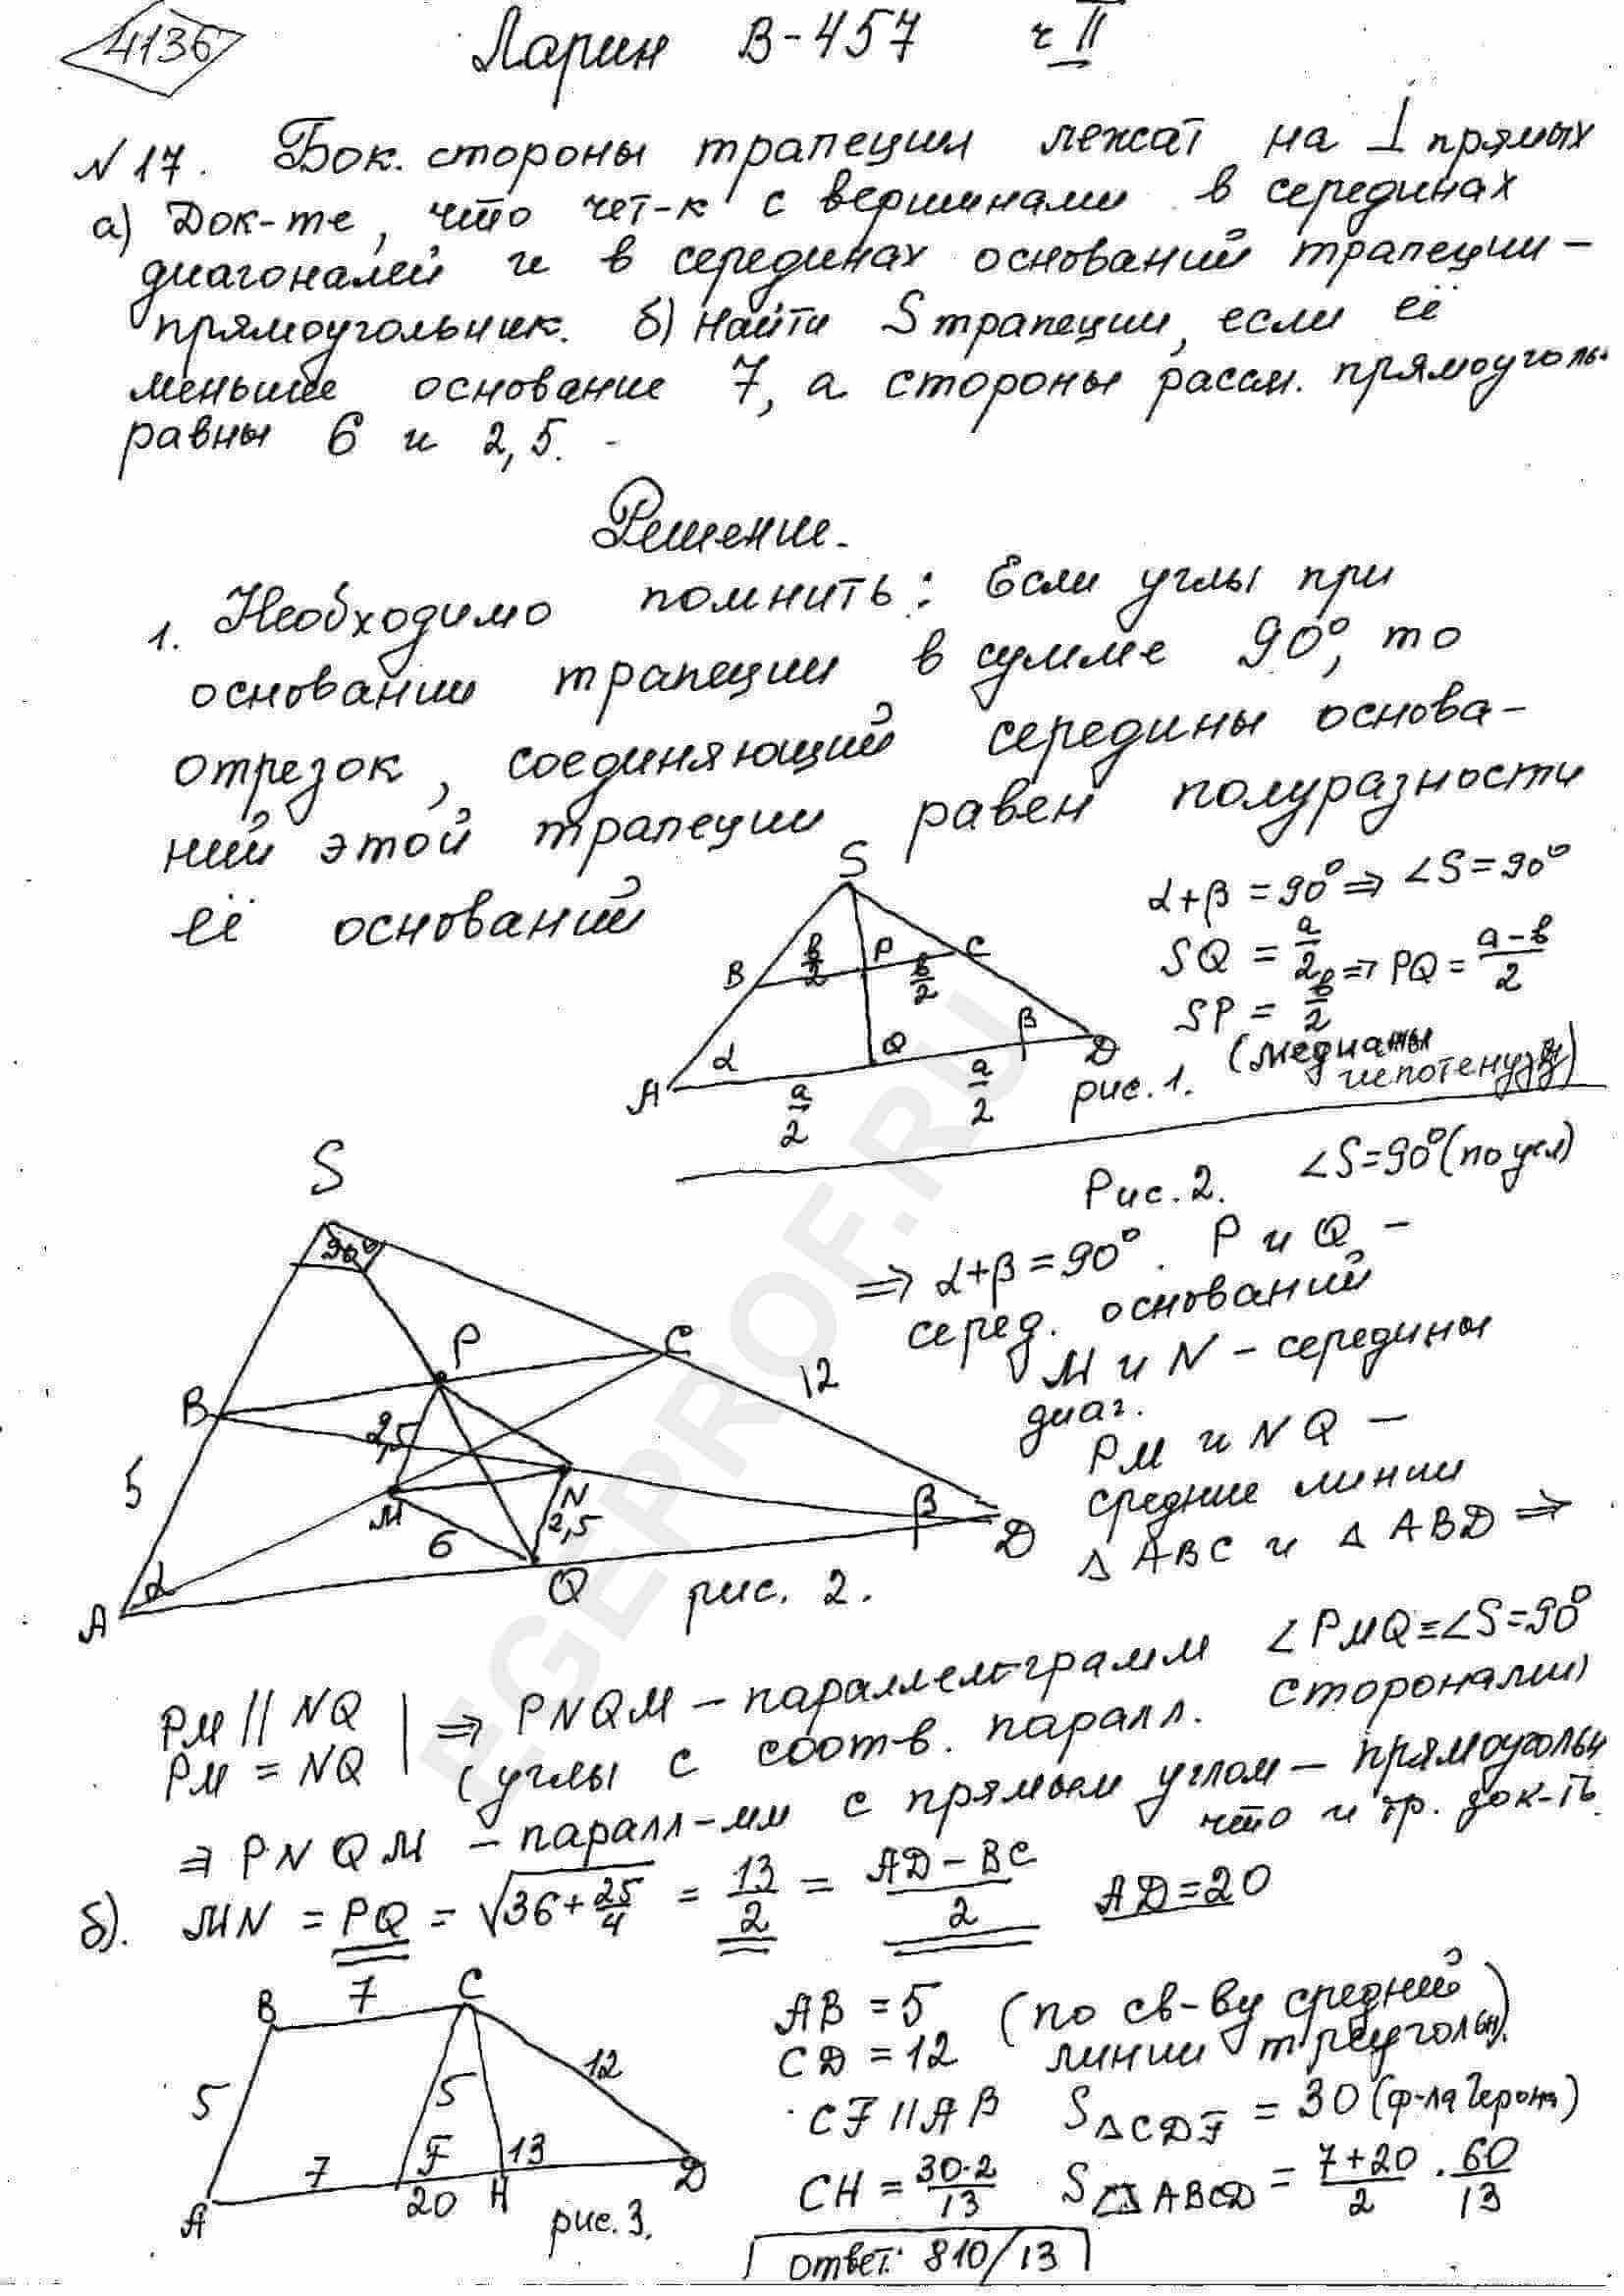 4136
Ларин В-457 ч II
№17. Бок. стороны трапеции лежат на ⊥ прямых
а) Док-те, что чет-к с вершинами в серединах
диагоналей и в серединах оснований трапеции –
прямоугольник. б) Найти S трапеции, если её
меньшее основание 7, а стороны рассм. прямоуголь.
равны 6 и 2,5.
Решение.
1. Необходимо помнить: Если углы при
основании трапеции в сумме 90°, то
отрезок, соединяющий середины основа-
ний этой трапеции равен полуразности
её оснований
S
B
b/2
P
b/2
C
A
α
Q
β
D
a/2
a/2
рис. 1.
α+β = 90° ⇒ ∠S = 90°
SQ = a/2
SP = b/2
⇒ PQ = (a-b)/2
(медианы
гипотенузы)
S
90°
P
C
B
2,5
12
5
M
N
2,5
6
β
D
A
α
Q
рис. 2.
Рис. 2. ∠S=90° (по усл)
⇒ α+β = 90°. P и Q –
серед. оснований
M и N – середины
диаг.
PM и NQ –
средние линии
△ ABC и △ ABD ⇒
PM || NQ
PM = NQ
⇒ PNQM – параллелограмм ∠PMQ = ∠S = 90°
(углы с соотв. паралл. сторонами)
⇒ PNQM – паралл-мм с прямым углом – прямоугольн
что и тр. док-ть.
б). MN = PQ = √(36 + 25/4) = 13/2 = (AD – BC)/2 AD = 20
B
7
C
5
5
12
7
F
13
A
20
H
D
рис. 3.
AB = 5 (по св-ву средней
CD = 12 линии треугольн).
CF || AB S△CDF = 30 (ф-ла Герона)
CH = 30·2/13 S ABCD = (7+20)/2 · 60/13
Ответ: 810/13
EGEPROF.RU